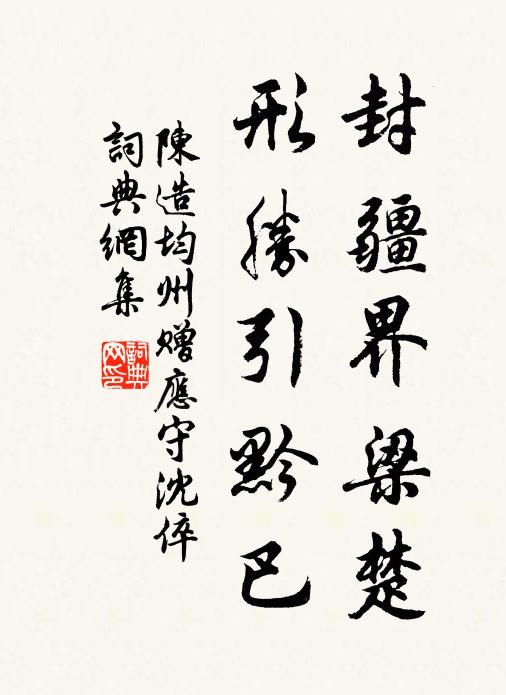 封疆界梁楚
形勝引黔巴
陳造均州贈應守沈倅
詞典網集
詞典
网印